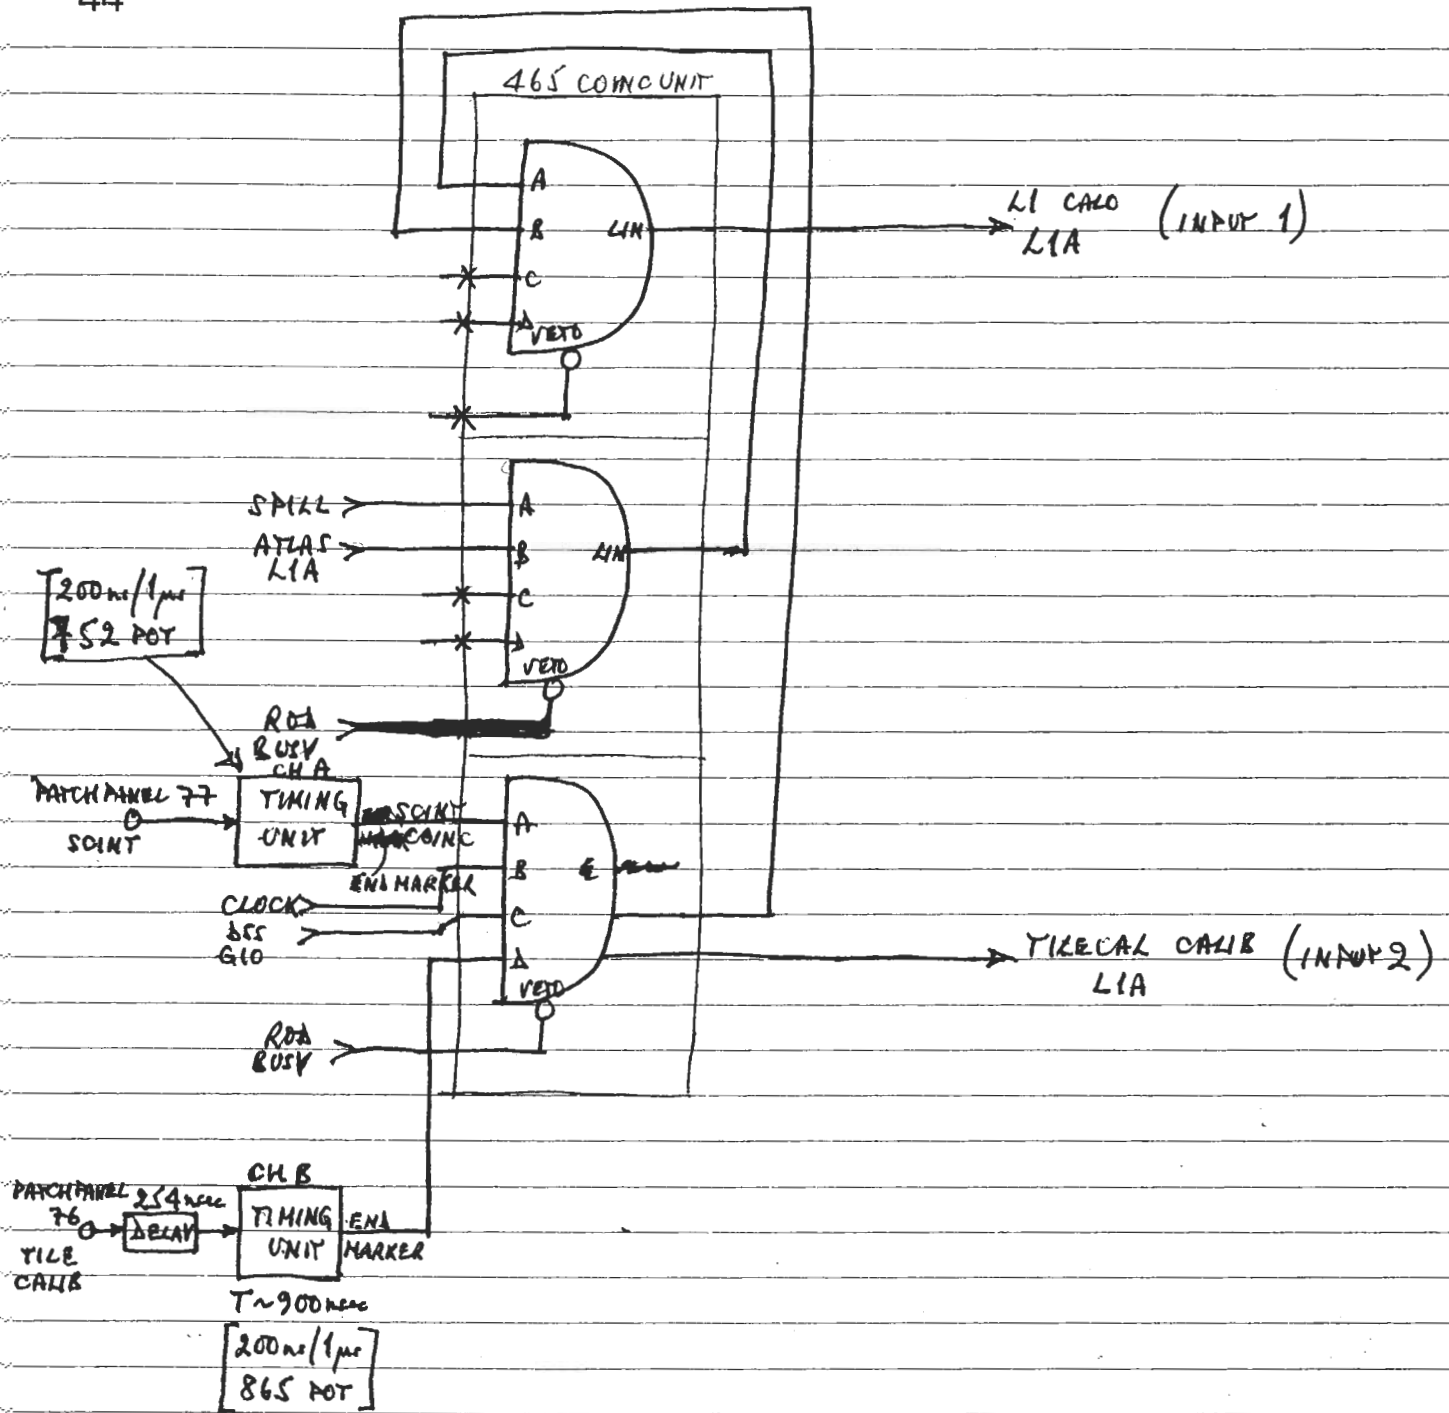 44
465 COINC UNIT
A
B
LIN
C
D
VETO
L1 CALO (INPUT 1)
L1A
SPILL
A
ATLAS
L1A
B
LIN
C
D
VETO
[200 ns/1 µs]
752 POT
ROD
BUSY
CH A
PATCH PANEL 77
SCINT
TIMING
UNIT
SCINT
COINC
END MARKER
A
B
C
D
VETO
CLOCK
DSS
G10
TILECAL CALIB (INPUT 2)
L1A
ROD
BUSY
CH B
PATCH PANEL
76
TILE
CALIB
254 nsec
DELAY
TIMING
UNIT
END
MARKER
T~900 nsec
[200 ns/1 µs]
865 POT